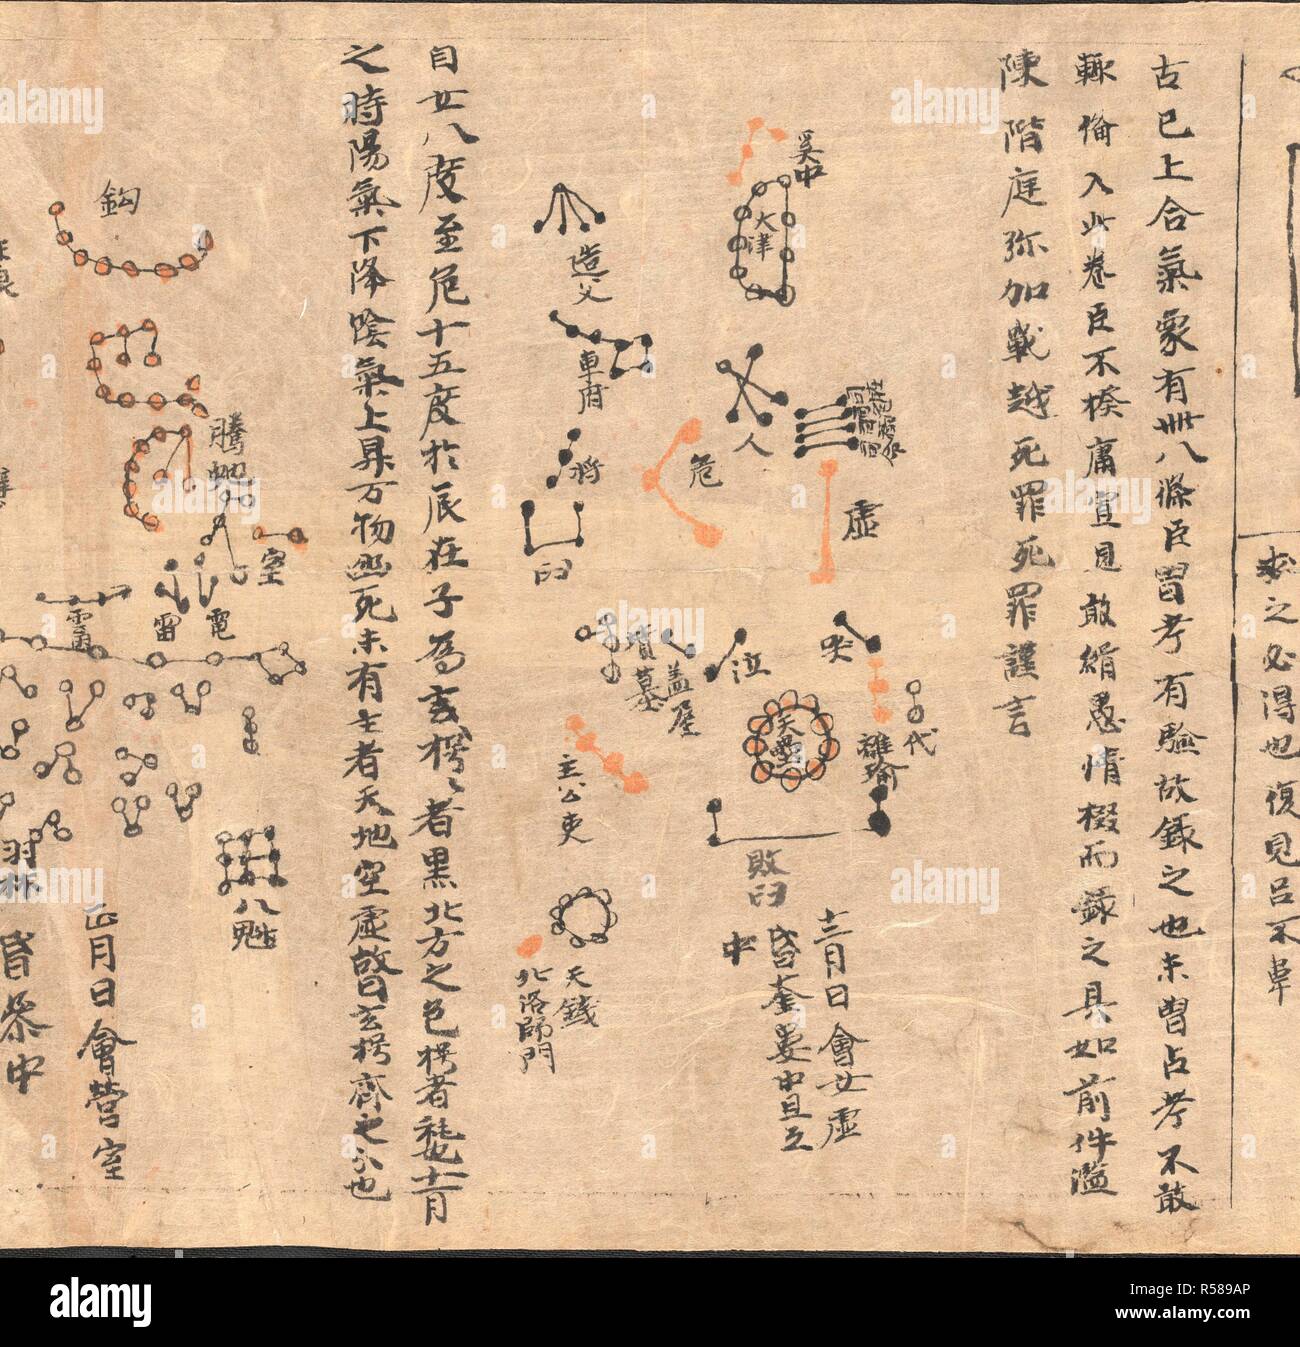 求之必得也復見呂不韋
古已上合氣象有卌八條臣曾考有驗故錄之也未曾占考不敢
輒備入此卷臣不揆庸冝見敢緝愚情掇而錄之具如前件濫
陳階庭弥加戰越死罪死罪謹言
奚中
天津
造父
車府
人
虛
危
將
臼
哭
泣
墳墓
盖屋
天壘
代
離瑜
敗臼
主公吏
天錢
北洛師門
十二月日會女虛
昏奎婁中旦互
中
自女八度至危十五度於辰在子為玄枵枵者黑北方之色枵者秏也十一月
之時陽氣下降陰氣上昇万物幽死未有生者天地空虛故曰玄枵齊之分也
鈎
騰虵
室
雷
電
八魁
羽林
正月日會營室
昏参中
alamy
Image ID: R589AP
www.alamy.com